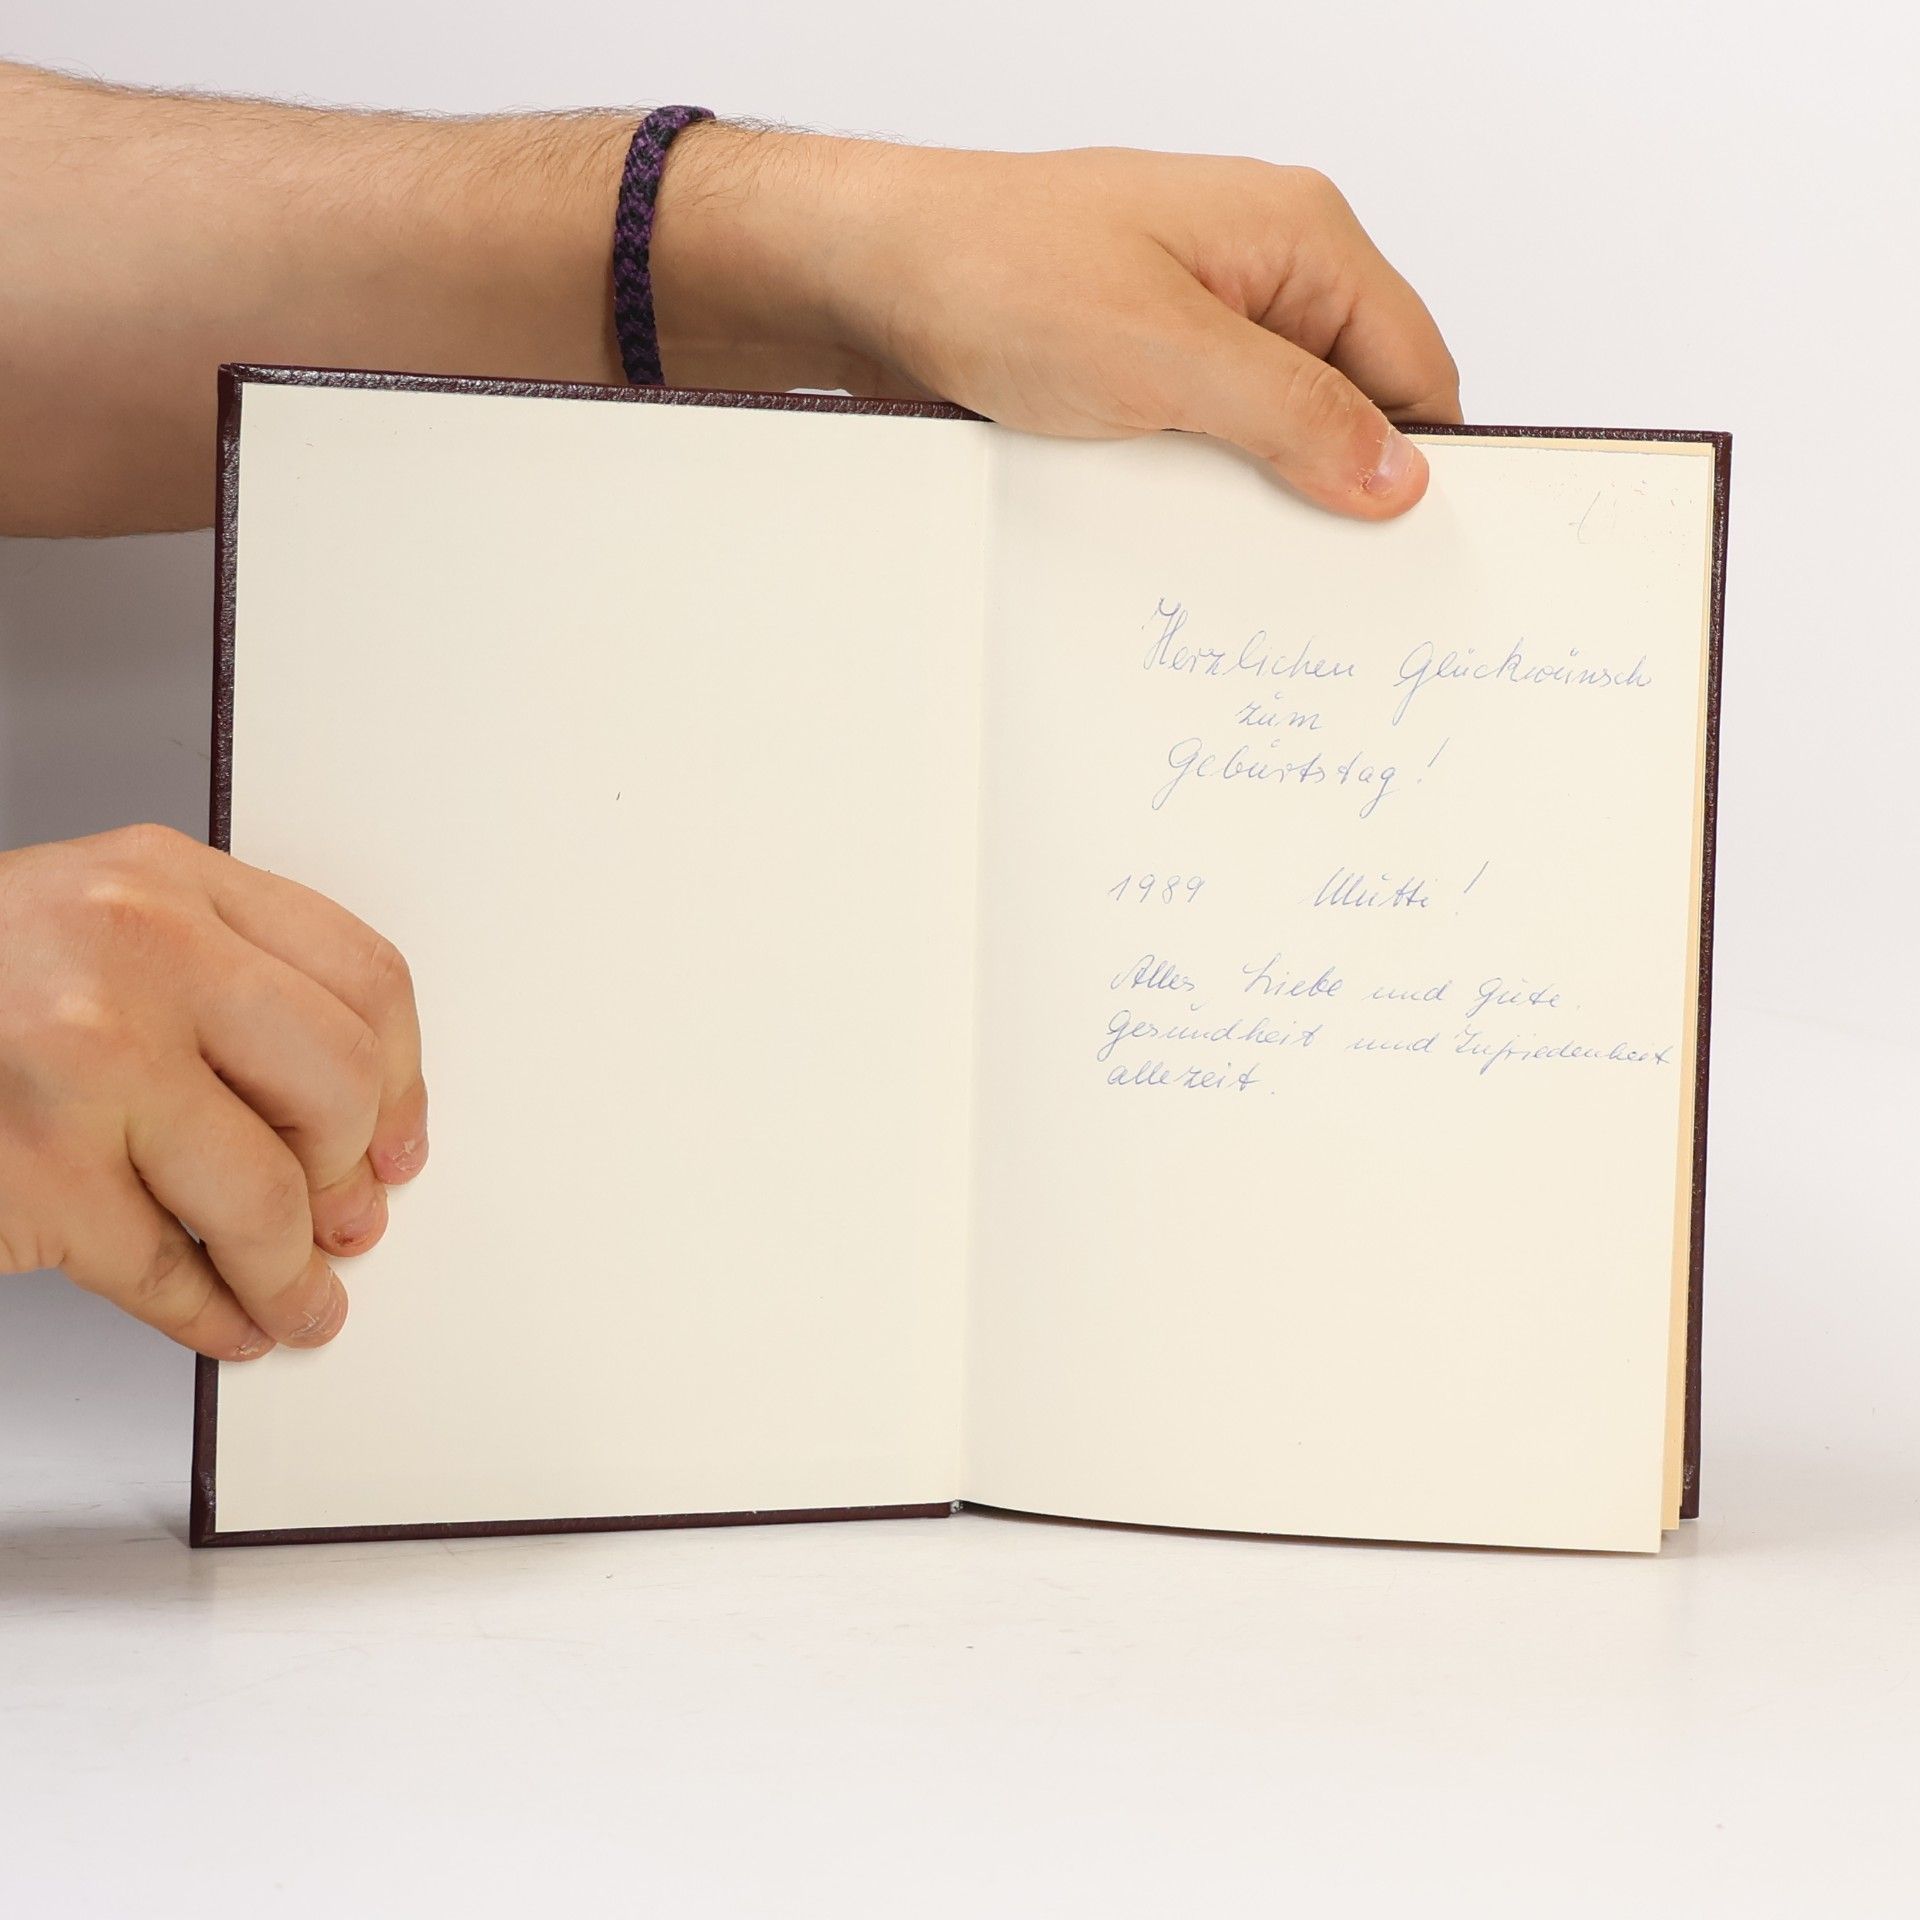 Herzlichen Glückwunsch
zum
Geburtstag!
1989 Mutti!
Alles Liebe und Gute.
Gesundheit und Zufriedenheit
allezeit.